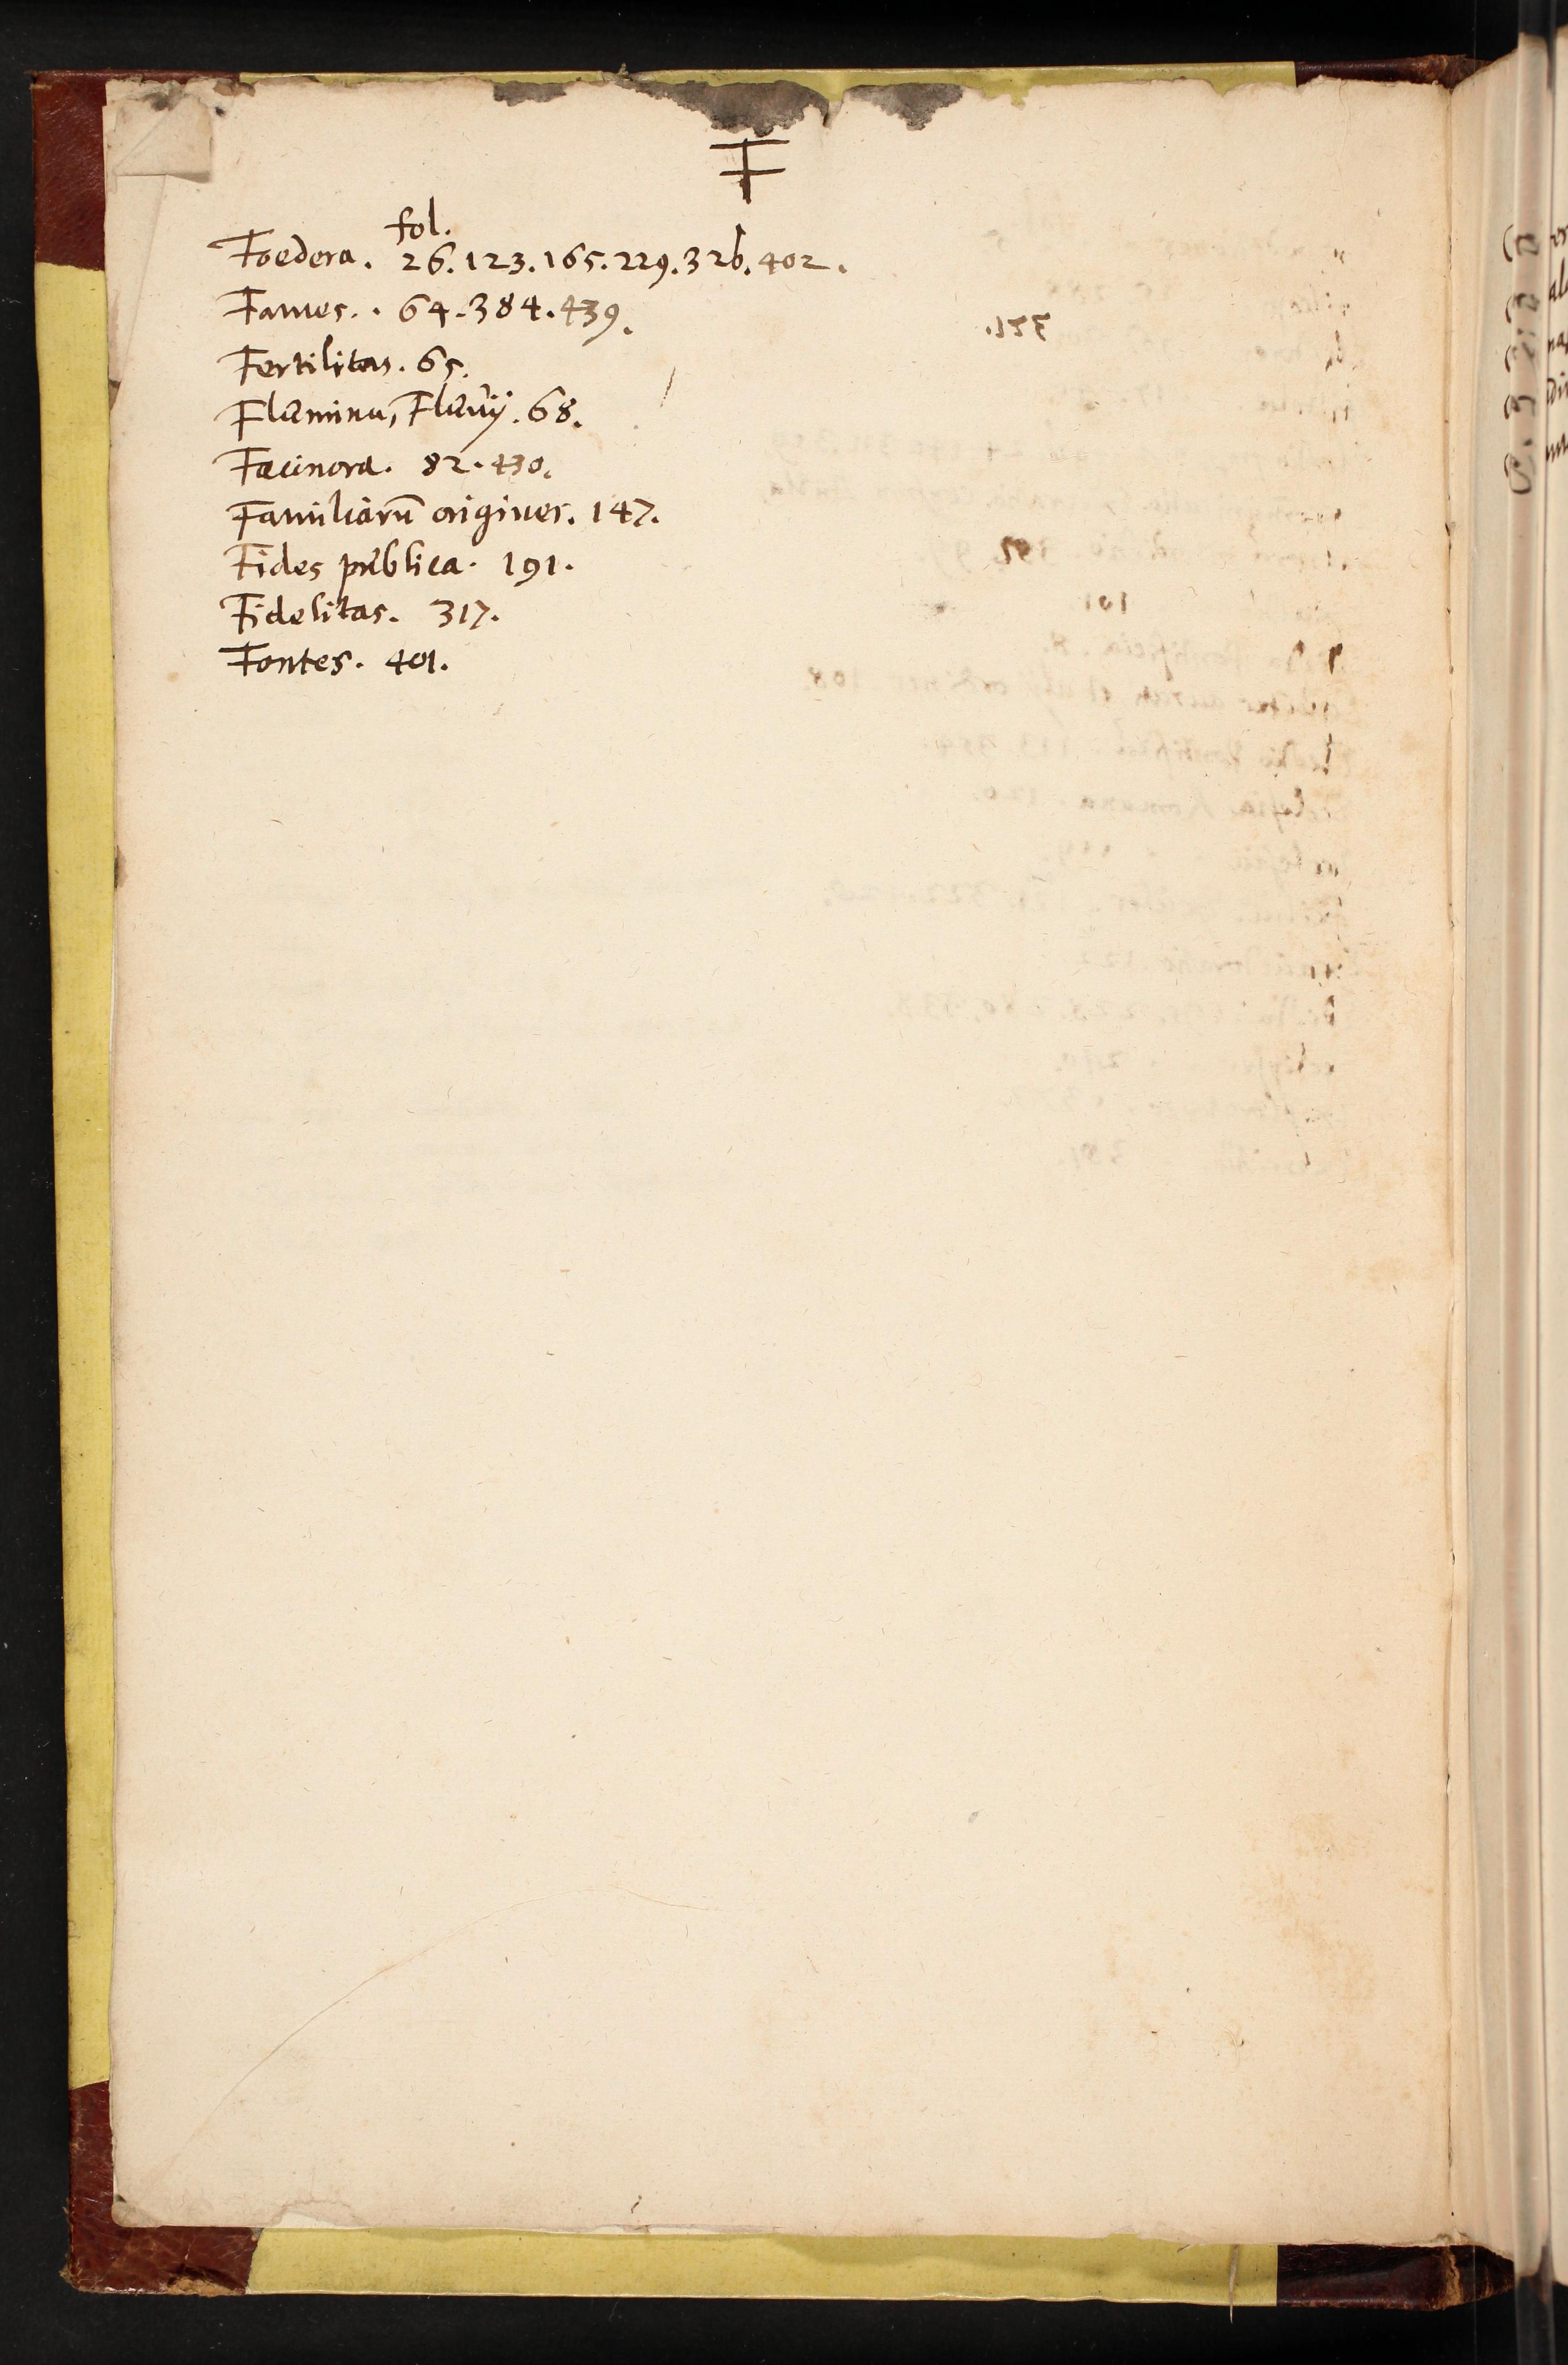 F
fol.
Foedera. 26. 123. 165. 229. 326. 402.
Fames. . 64. 384. 439.
Fertilitas. 65.
Flumina, Fluvij. 68.
Facinora. 82. 430.
Familiarū origines. 147.
Fides publica. 191.
Fidelitas. 317.
Fontes. 401.